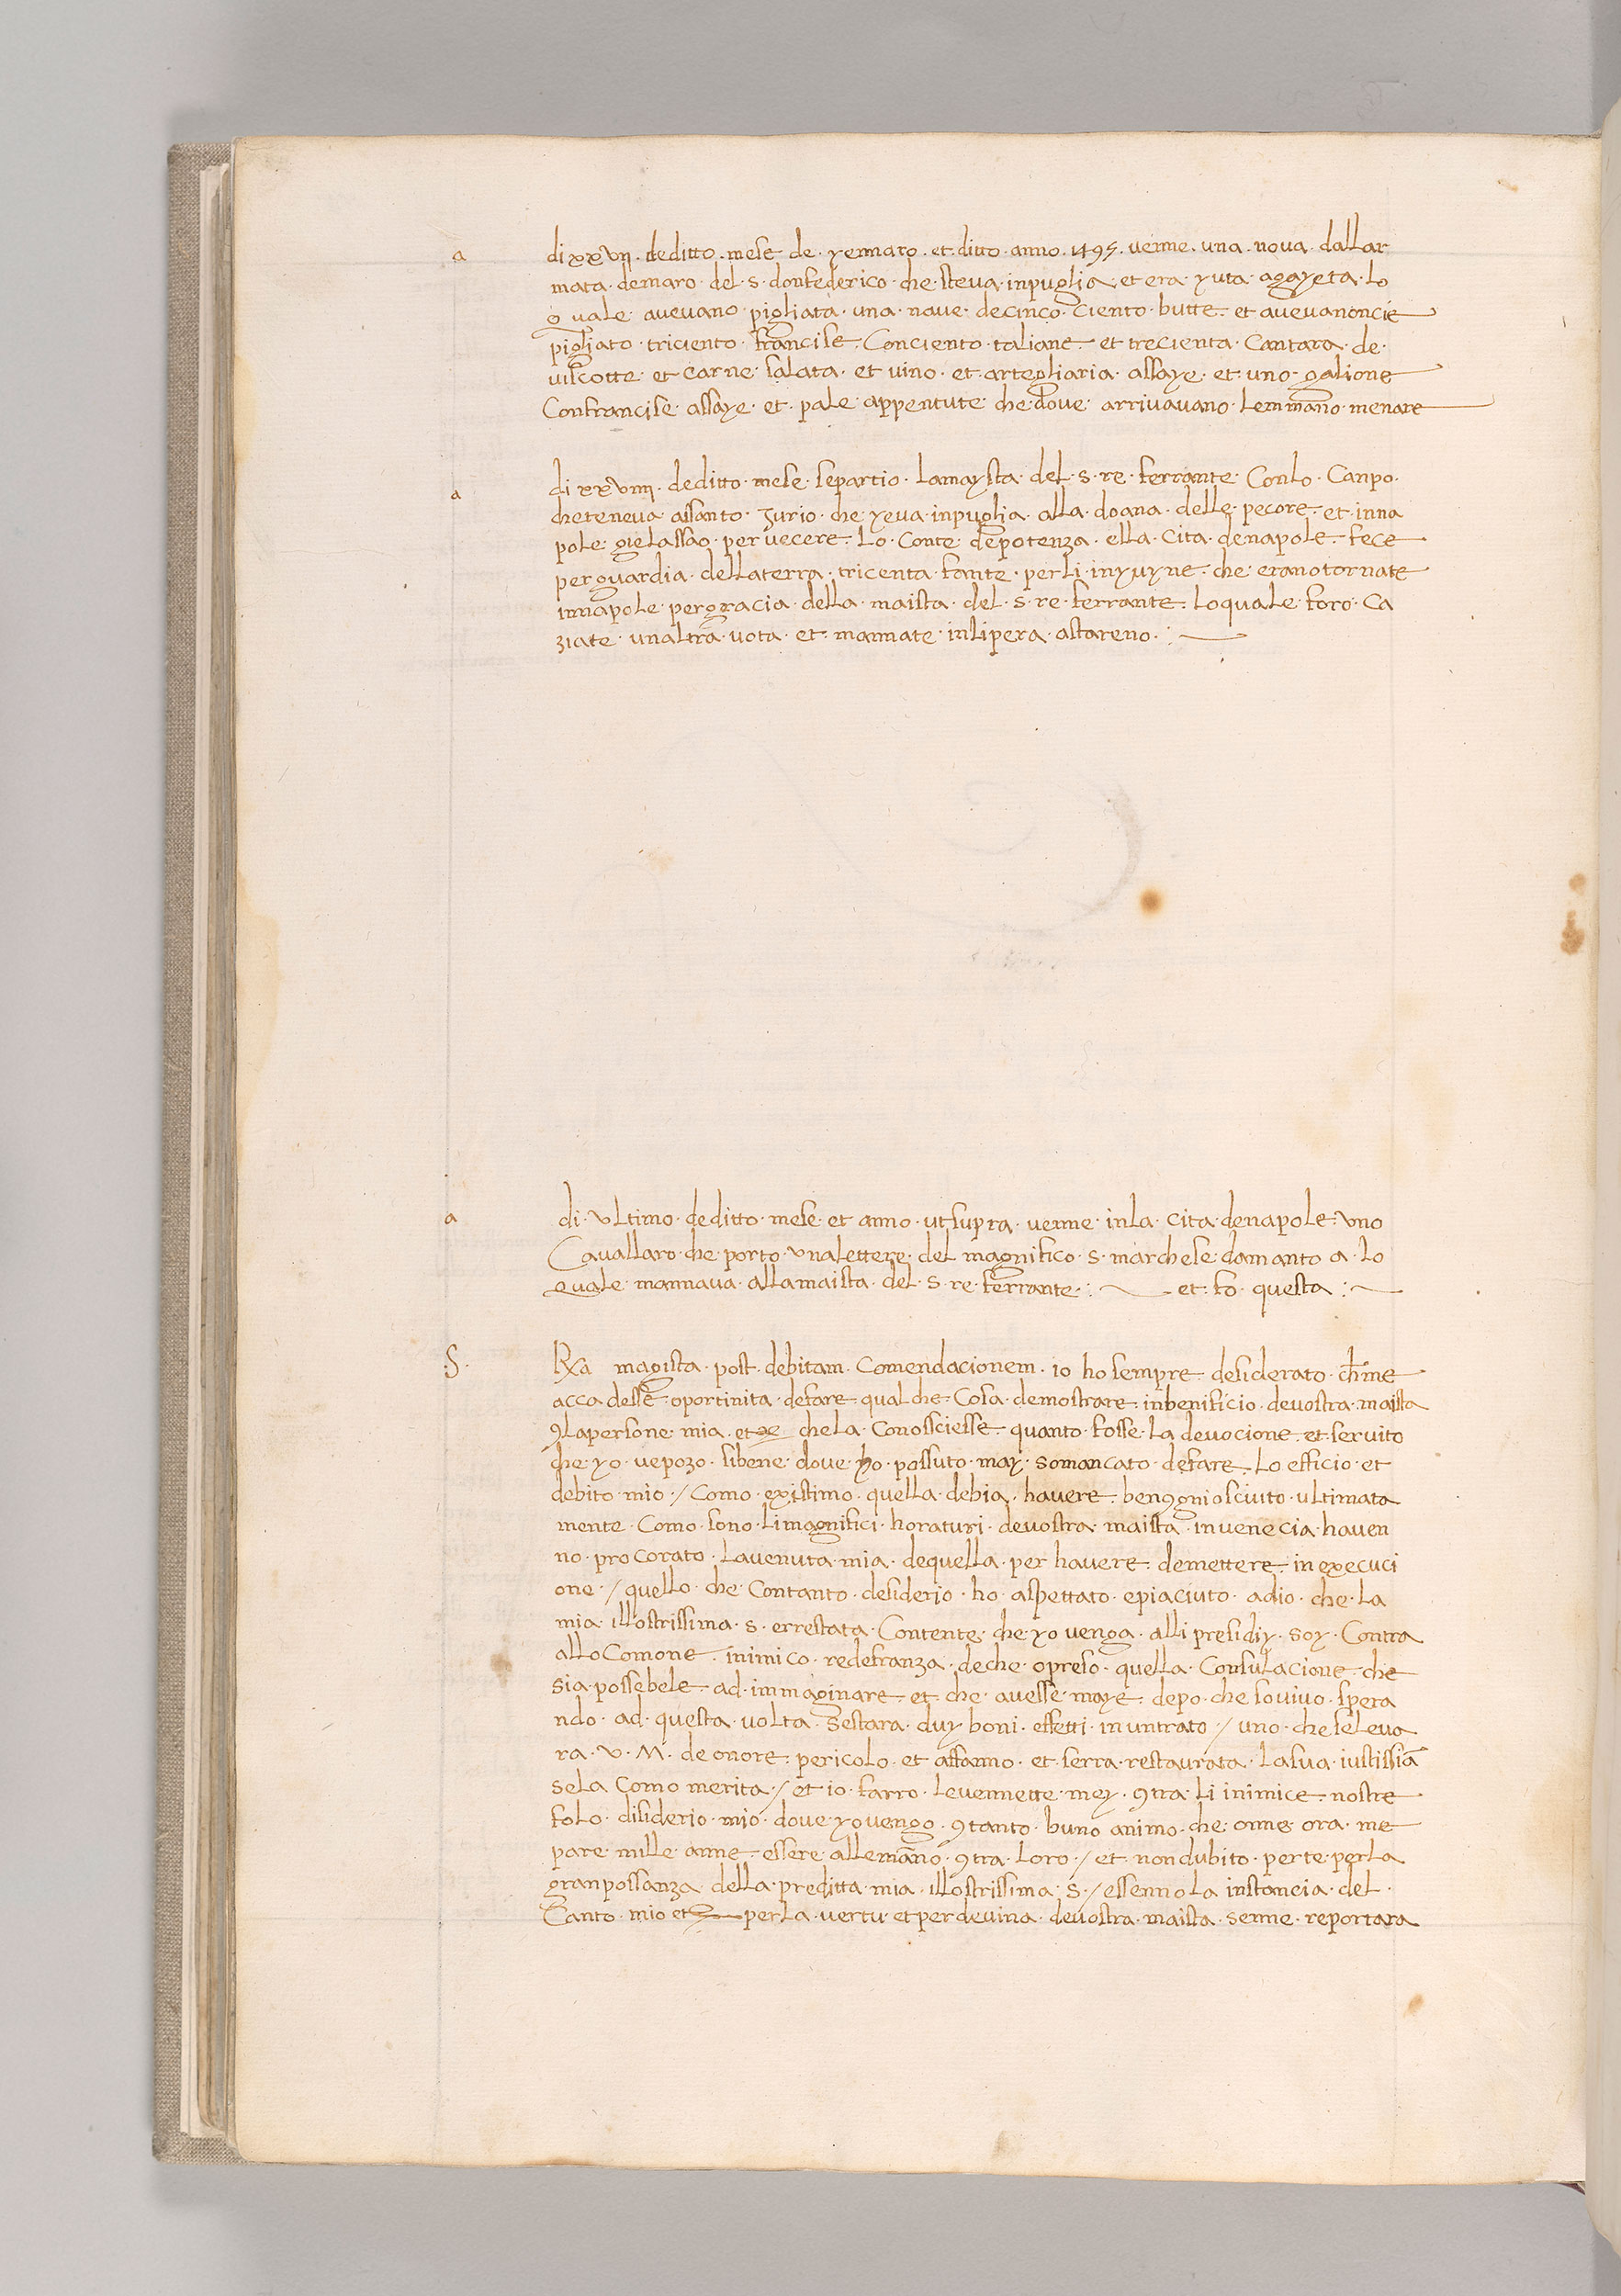 a di xxvii. deditto. mese de. yennaro. et. ditto. anno. 1495. venne. una. nova. dallar
mata. demaro. del. s. donfederico. che. steva. inpuglia. et era. yuta. agayeta. lo
quale. avevano. pigliata. una. nave. decinco. ciento. butte. et avevanoncie
pigliato. triciento. francise. Conciento. taliane. et trecienta. Cantara. de.
viscotte. et carne. salata. et vino. et. artegliaria. assaye. et. uno. galione
Confrancise. assaye. et. pale. appentute. che. dove. arrivavano. lemmāno. menare
a di xxviiii. deditto. mese. separtio. lamaysta. del. s. re. ferrante. Conlo. Canpo.
cheteneva. assanto. Jurio. che. yeva. inpuglia. alla. doana. delle. pecore. et. inna
pole. gielassao. pervecere. Lo. Conte. depotenza. ella. Cita. denapole. fece
perguardia. dellaterra. tricenta. fante. perli. inyuyne. che. eranotornate
innapole. pergracia. della. maista. del. s. re. ferrante. loquale. foro. Ca
ziate. unaltra. vota. et. mannate. inlipera. astareno.
a di. ultimo. deditto. mese. et anno. utsupra. venne. inla. cita. denapole. uno
Cavallaro. che. porto. unalettere. del magnifico. s. marchese. damanto a. lo
quale. mannava. allamaista. del. s. re. ferrante. et. fo. questa
.S. magista. post. debitam. Comendacionem. io ho sempre. desiderato. chme
acca desse. oportinita. defare. qualche. Cosa. demostrare. inbenificio. devostra. maista
ꝯlapersone. mia. et chela. Conossciesse. quanto. fosse. la devocione. et. servito
che. yo. vepozo. sibene. dove. ho. possuto. may. somancato. defare. lo efficio. et
debito. mio / Como. existimo. quella. debia. havere. benꝯgniosciuto. ultimata
mente. Como. sono. limagnifici. horaturi. devostra. maista. invenecia. haven
no. procorato. lavenuta. mia. dequella. per havere. demettere. in execuci
one. / quello. che. Contanto. desiderio. ho. aspettato. epiaciuto. adio. che. la
mia. illostrissima. s. errestata. Contente. che. yo venga. alli presidiy. soy. Contra
allo Comone. inimico. redefranza. deche. opreso. quella. Consulacione. che
sia. possebele. ad. immaginare. et. che. avesse. maye. depo. che. sovivo. spera
ndo. ad. questa. volta. sestara. duy boni. effetti. inuntrato / uno. che seleva
ra. v. M. de onore. pericolo. et affanno. et. serra. restaurata. lasua. iustissiā
sela Como merita. / et io. farro. levennette. mey. ꝯtra. li inimice. nostre
solo. disiderio. mio. dove. yovengo. ꝯtanto. buno animo. che. onne. ora. me
pare. mille. anne. essere. allemāno. ꝯtra. loro. / et. nondubito. perte. perla
granpossanza. della. preditta. mia. illostrissima. s. / essennola instancia. del.
Canto. mio et perla. vertu. etperdevina. devostra. maista. senne. reportara